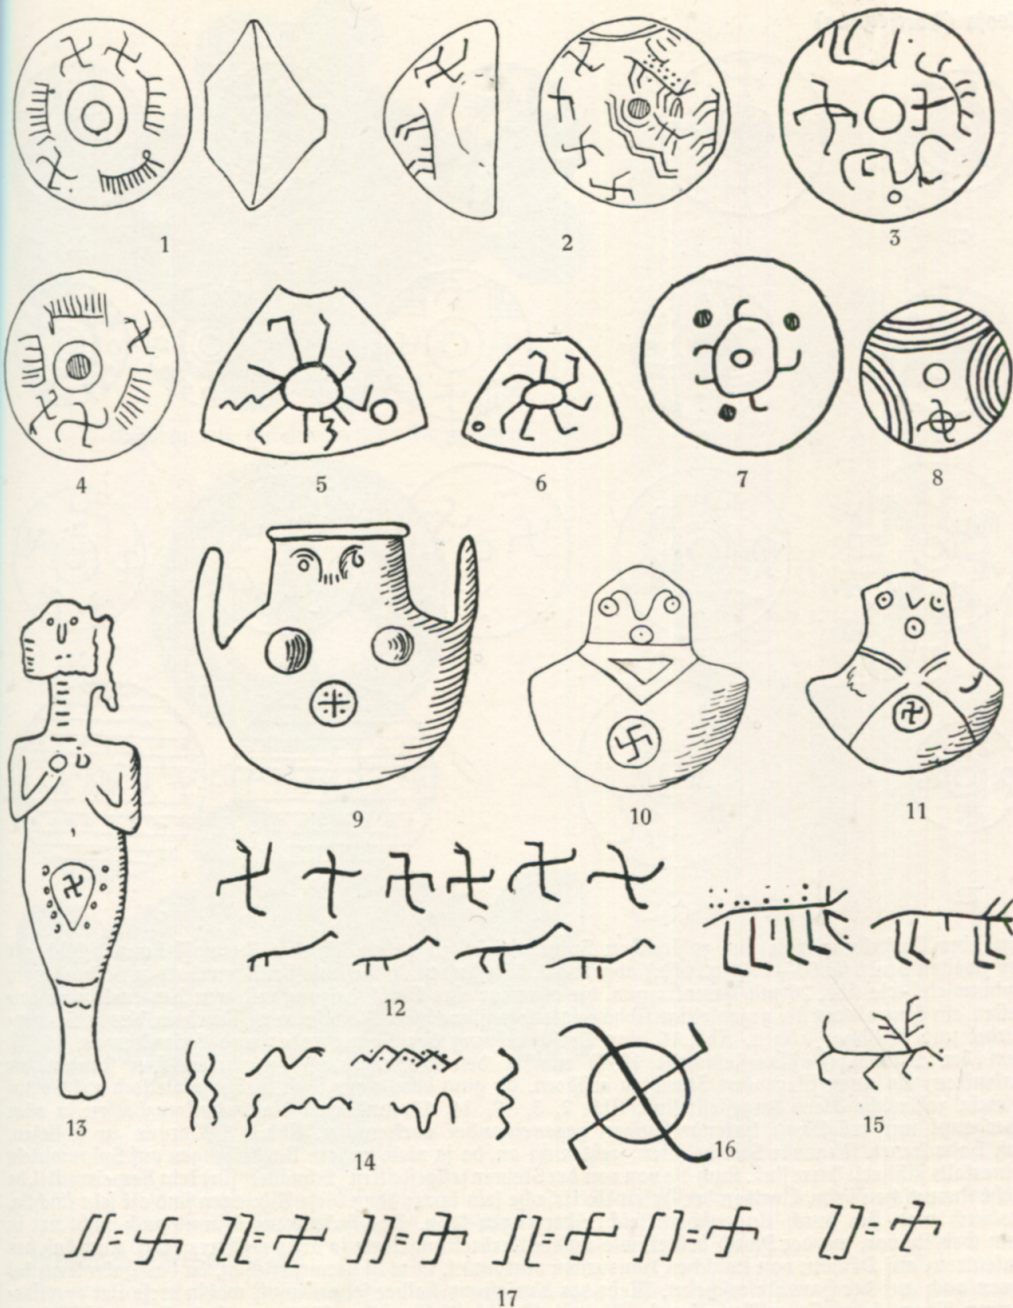 1
2
3
4
5
6
7
8
9
10
11
12
13
14
15
16
17